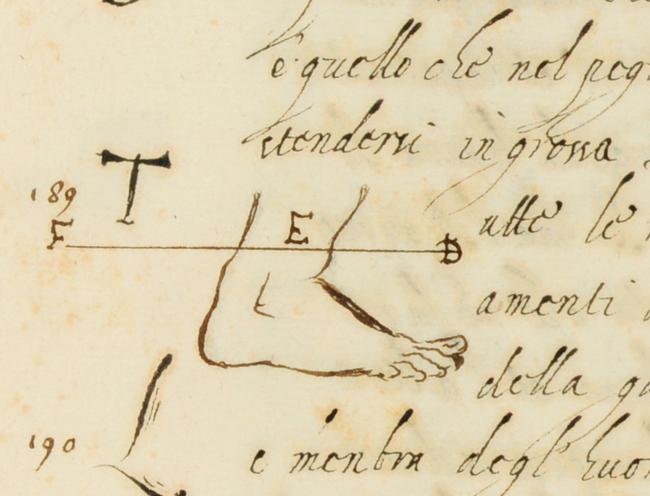 è quello che nel peg
stendersi in grossa
T
189
F E D
utte le
amenti
della ga
190
e menbra degl' huo